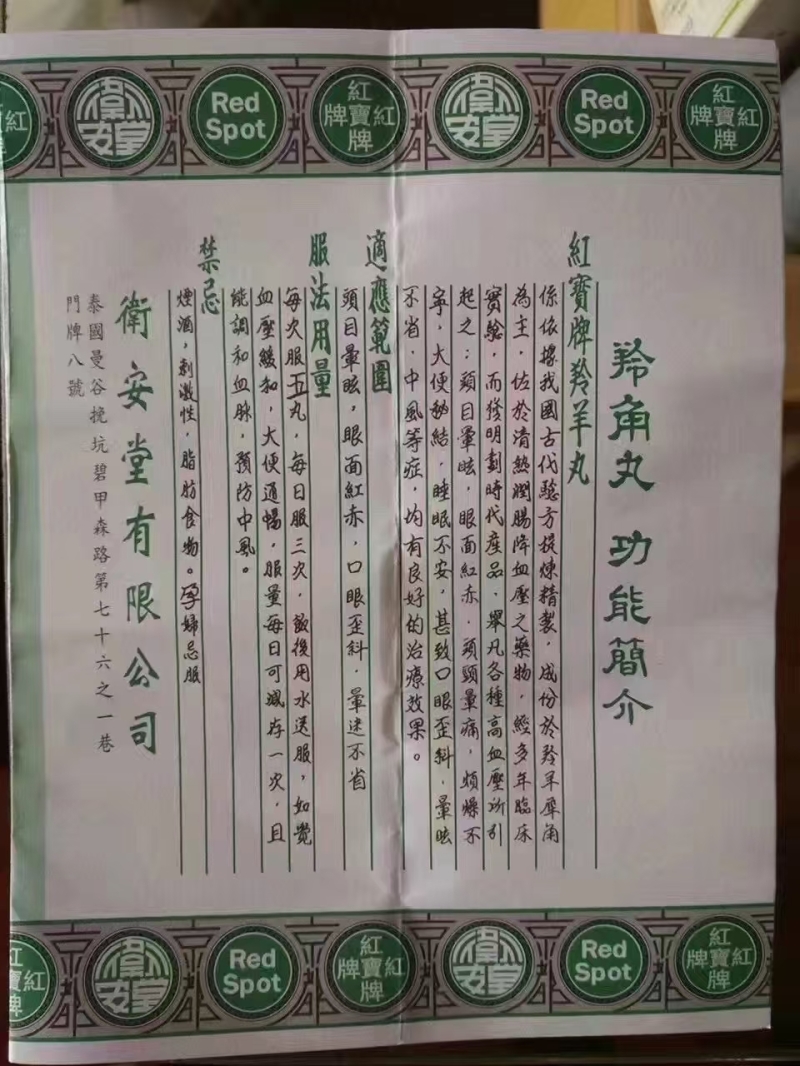 衛安堂
Red Spot
紅寶牌
紅牌
衛安堂
Red Spot
紅寶牌
紅牌
羚角丸 功能簡介
紅寶牌羚羊丸
係依據我國古代驗方提煉精製，成份於羚羊犀角
為主，佐於清熱潤腸降血壓之藥物，經多年臨床
實驗，而發明劃時代產品，舉凡各種高血壓所引
起之：頭目暈眩，眼面紅赤，頭頸暈痛，煩燥不
寧，大便秘結，睡眠不安，甚致口眼歪斜，暈眩
不省，中風等症，均有良好的治療效果。
適應範圍
頭目暈眩，眼面紅赤，口眼歪斜，暈迷不省
服法用量
每次服五丸，每日服三次，飯後用水送服，如覺
血壓緩和，大便通暢，服量每日可減存一次，且
能調和血脉，預防中風。
禁忌
煙酒，刺激性，脂肪食物。孕婦忌服
衛安堂有限公司
泰國曼谷挽坑碧甲森路第七十六之一巷
門牌八號
衛安堂
Red Spot
紅寶牌
紅牌
衛安堂
Red Spot
紅寶牌
紅牌